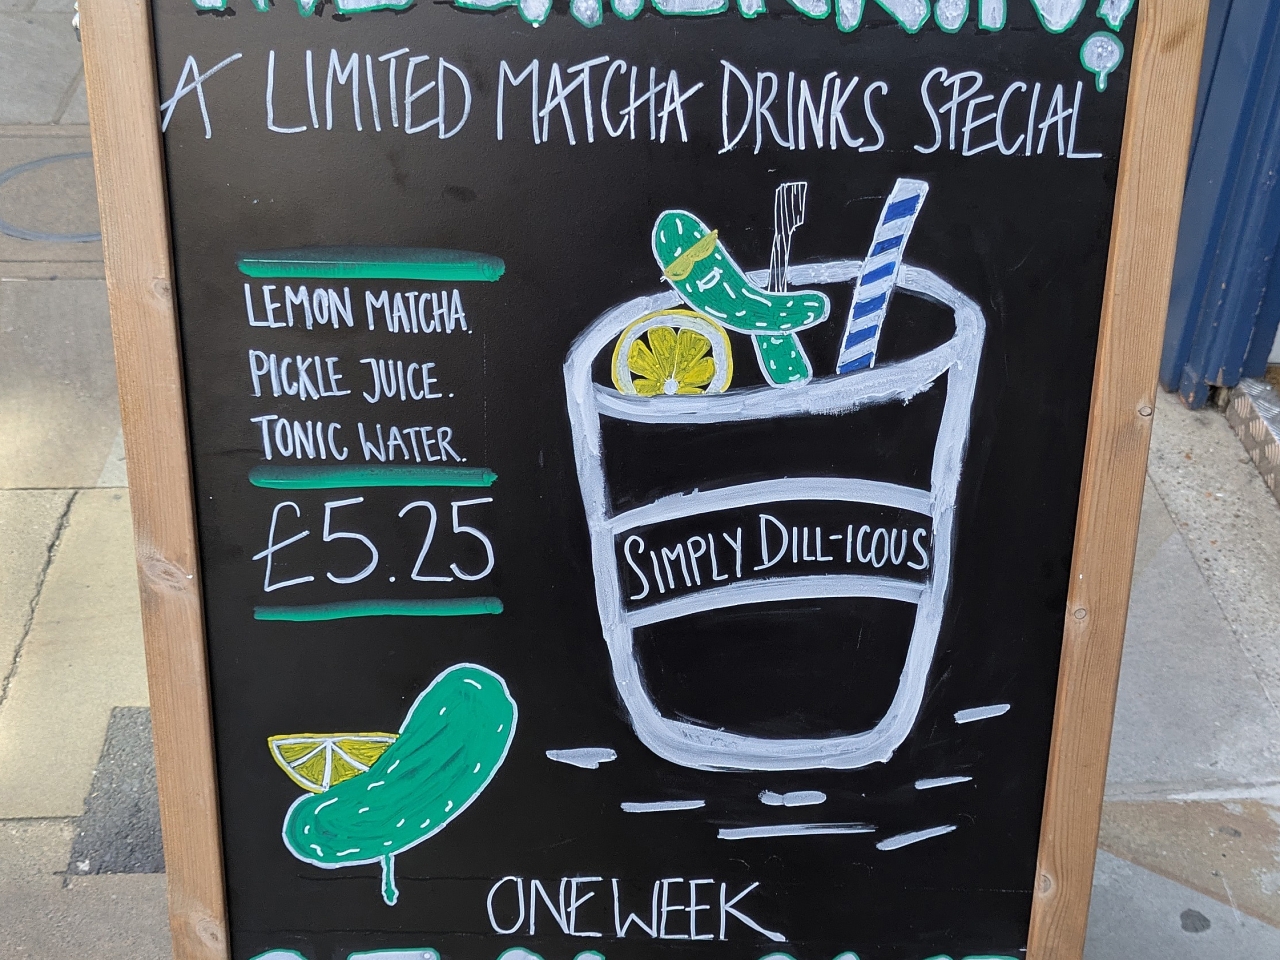 A LIMITED MATCHA DRINKS SPECIAL
LEMON MATCHA.
PICKLE JUICE.
TONIC WATER.
£5.25
SIMPLY DILL-ICOUS
ONE WEEK